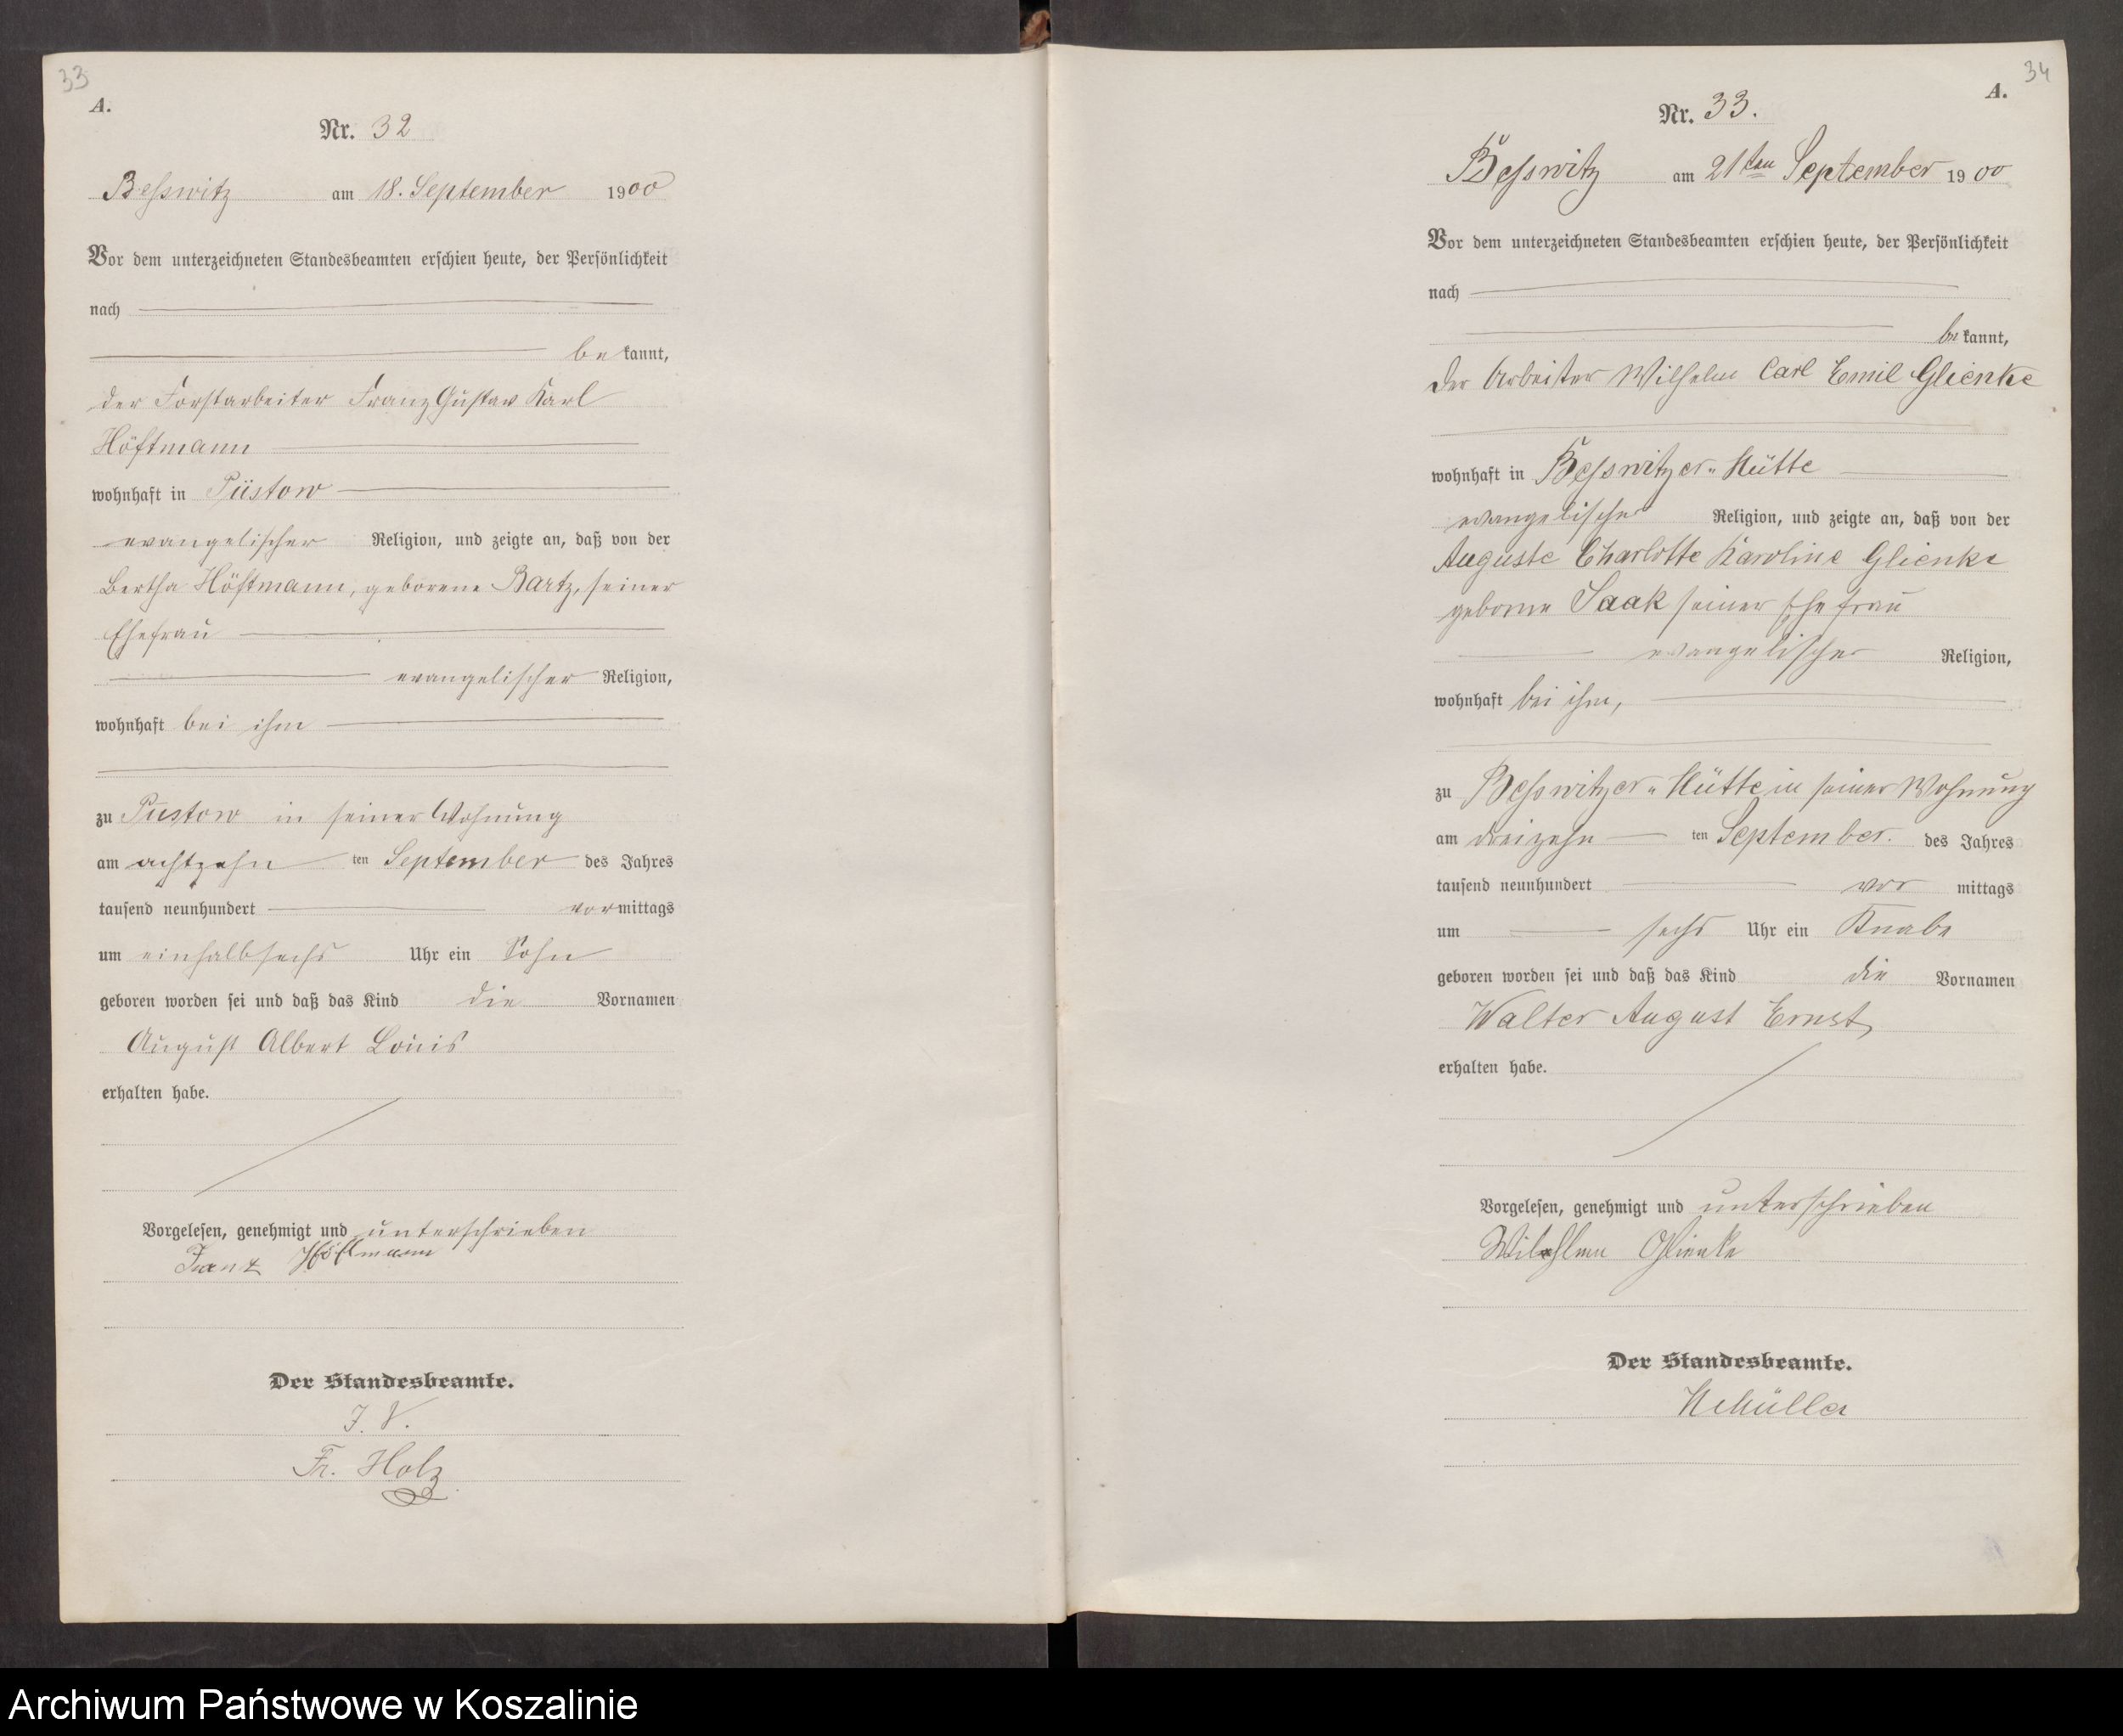 33
A.
Nr. 32
Beßwitz am 18. September 1900
Vor dem unterzeichneten Standesbeamten erschien heute, der Persönlichkeit
nach
be kannt,
der Forstarbeiter Franz Gustav Karl
Höftmann
wohnhaft in Püstow
evangelischer Religion, und zeigte an, daß von der
Bertha Höftmann, geborene Bartz, seiner
Ehefrau
evangelischer Religion,
wohnhaft bei ihm
zu Püstow in seiner Wohnung
am achtzehn ten September des Jahres
tausend neunhundert vormittags
um einhalbsechs Uhr ein Sohn
geboren worden sei und daß das Kind die Vornamen
August Albert Louis
erhalten habe.
Vorgelesen, genehmigt und unterschrieben
Franz Höftmann
Der Standesbeamte.
J. V.
Fr. Holz
34
A.
Nr. 33.
Beßwitz am 21ten September 1900
Vor dem unterzeichneten Standesbeamten erschien heute, der Persönlichkeit
nach
be kannt,
der Arbeiter Wilhelm Carl Emil Glienke
wohnhaft in Beßwitzer-Hütte
evangelischer Religion, und zeigte an, daß von der
Auguste Charlotte Karoline Glienke
geborne Saak seiner Ehefrau
evangelischer Religion,
wohnhaft bei ihm,
zu Beßwitzer-Hütte in seiner Wohnung
am dreizehn ten September. des Jahres
tausend neunhundert vor mittags
um sechs Uhr ein Knabe
geboren worden sei und daß das Kind die Vornamen
Walter August Ernst,
erhalten habe.
Vorgelesen, genehmigt und unterschrieben
Wilehlm Glienke
Der Standesbeamte.
Archiwum Państwowe w Koszalinie